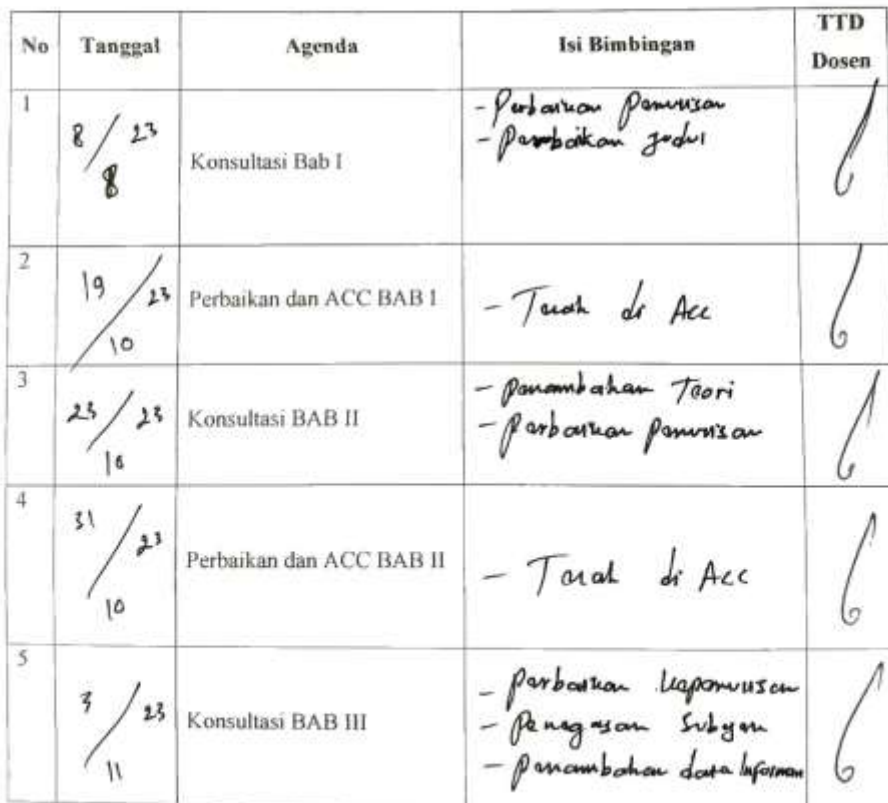 No Tanggal Agenda Isi Bimbingan TTD Dosen
1 8/8 23 Konsultasi Bab I - Perbaikan Penulisan
- Perbaikan Judul
2 19/10 23 Perbaikan dan ACC BAB I - Telah di Acc
3 23/10 23 Konsultasi BAB II - Penambahan Teori
- Perbaikan Penulisan
4 31/10 23 Perbaikan dan ACC BAB II - Telah di Acc
5 3/11 23 Konsultasi BAB III - Perbaikan
- Penegasan
- Penambahan data Informan